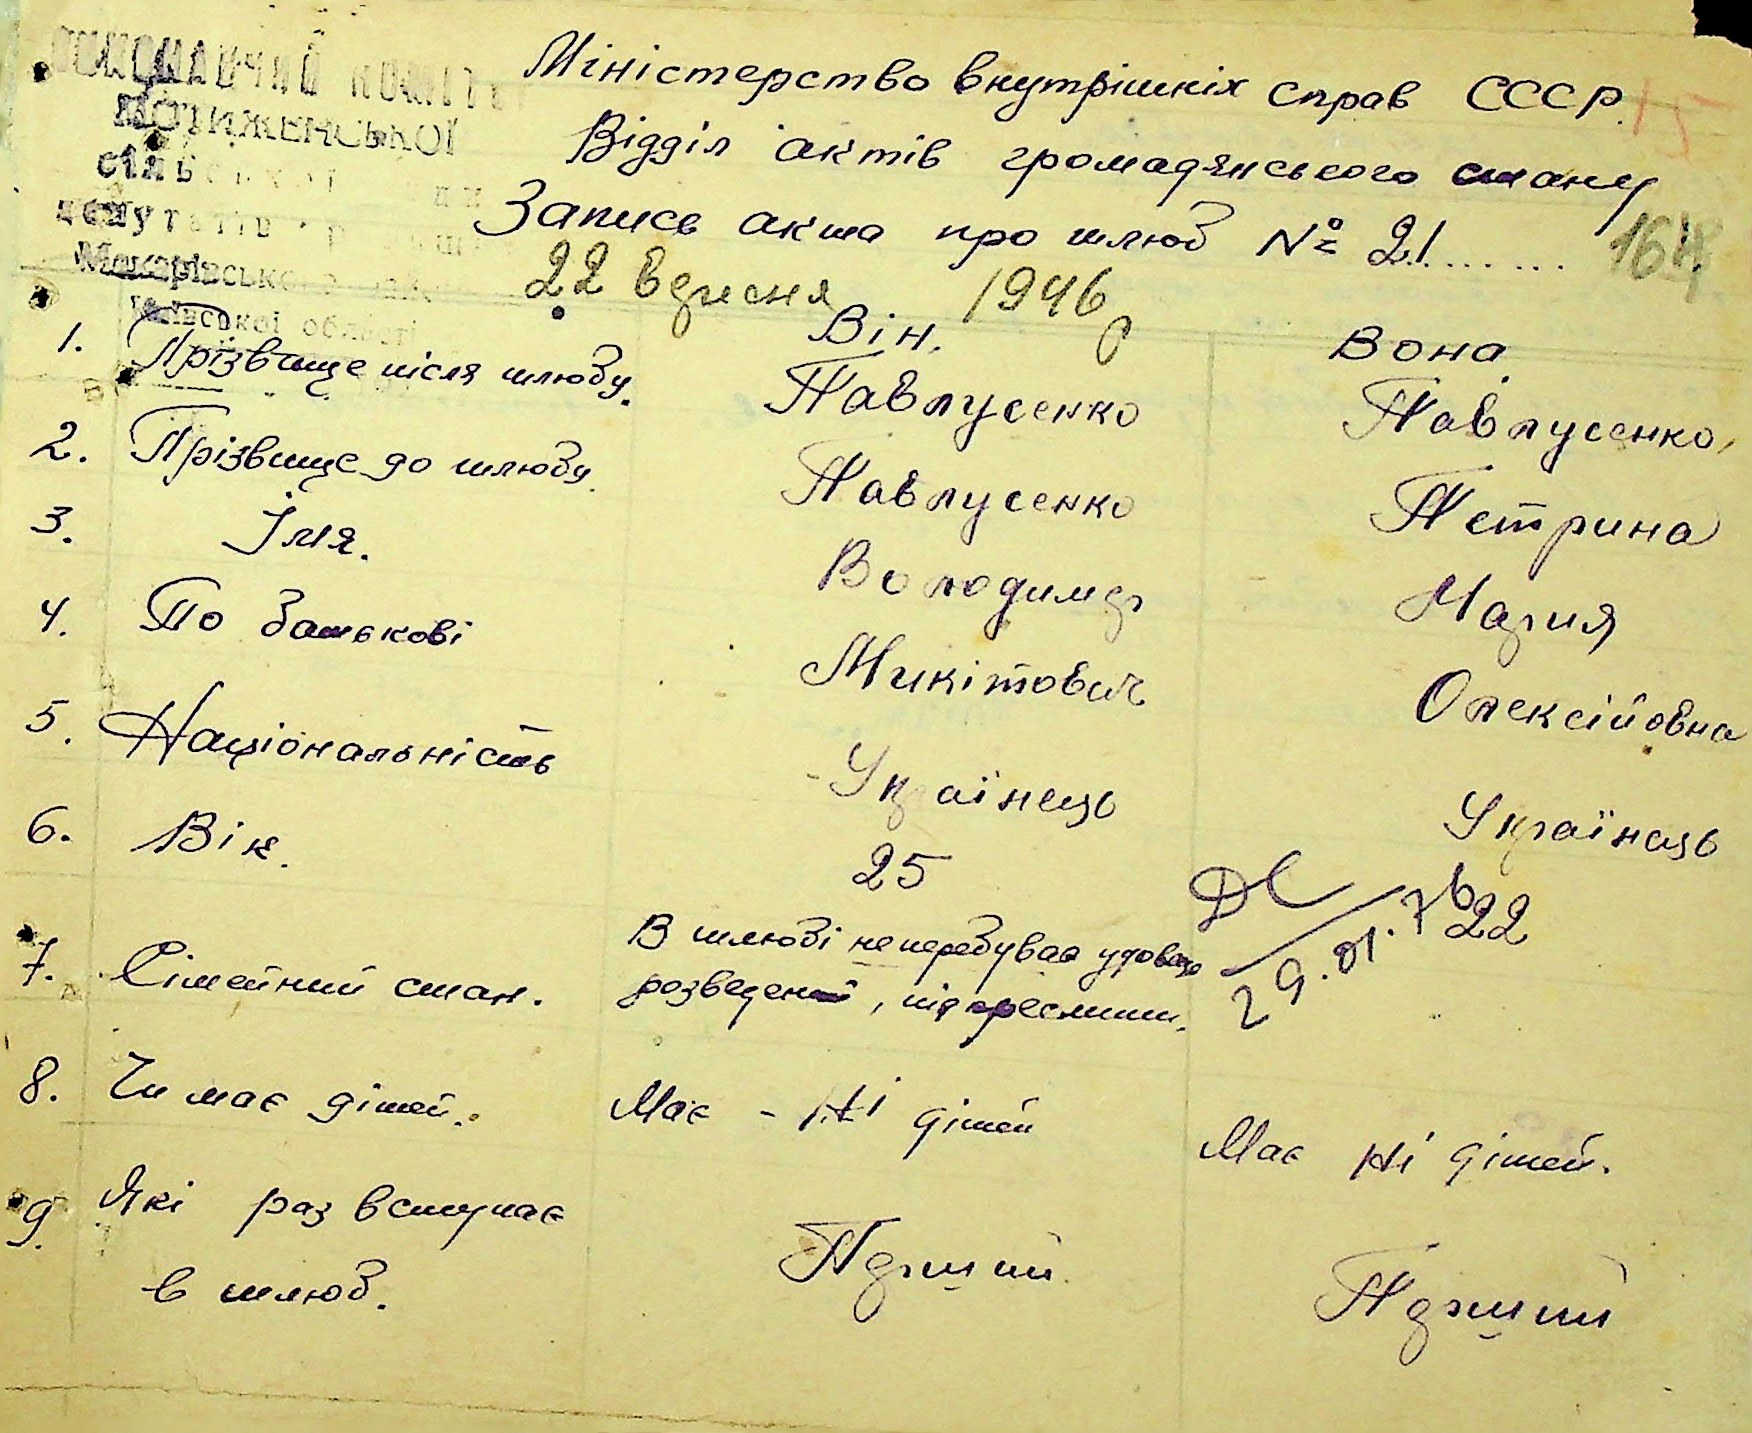 ВИКОНАВЧИЙ КОМІТЕТ
МОТИЖЕНСЬКОЇ
сільської
депутатів
Макарівського
Київської області
Міністерство внутрішніх справ СССР.
15
Відділ актів громадянського стану
Запись акта про шлюб № 21.......
22 вересня 1946 р
Він. Вона
1. Прізвище після шлюбу. Павлусенко Павлусенко,
2. Прізвище до шлюбу. Павлусенко Петрина
3. Імя. Володимер Мария
4. По батькові Микітович Олексійовна
5. Національність - Українець Українець
6. Вік. 25 22
29.01.76
7. Сімейний стан. В шлюбі не перебуває удовець
розведений, підкреслити.
8. Чи має дітей. Має - Ні дітей Має Ні дітей.
9. Які раз вступає Перший Перший
в шлюб.